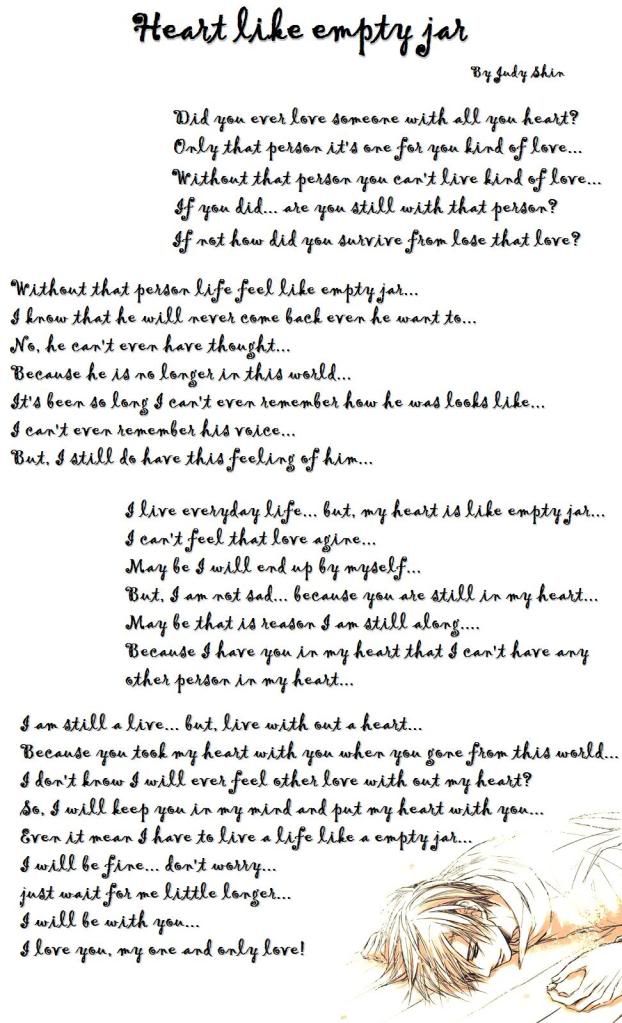 Heart like empty jar
By Judy Shin
Did you ever love someone with all you heart?
Only that person it's one for you kind of love...
Without that person you can't live kind of love...
If you did... are you still with that person?
If not how did you survive from lose that love?
Without that person life feel like empty jar...
I know that he will never come back even he want to...
No, he can't even have thought...
Because he is no longer in this world...
It's been so long I can't even remember how he was looks like...
I can't even remember his voice...
But, I still do have this feeling of him...
I live everyday life... but, my heart is like empty jar...
I can't feel that love agine...
May be I will end up by myself...
But, I am not sad... because you are still in my heart...
May be that is reason I am still along....
Because I have you in my heart that I can't have any
other person in my heart...
I am still a live... but, live with out a heart...
Because you took my heart with you when you gone from this world...
I don't know I will ever feel other love with out my heart?
So, I will keep you in my mind and put my heart with you...
Even it mean I have to live a life like a empty jar...
I will be fine... don't worry...
just wait for me little longer...
I will be with you...
I love you, my one and only love!